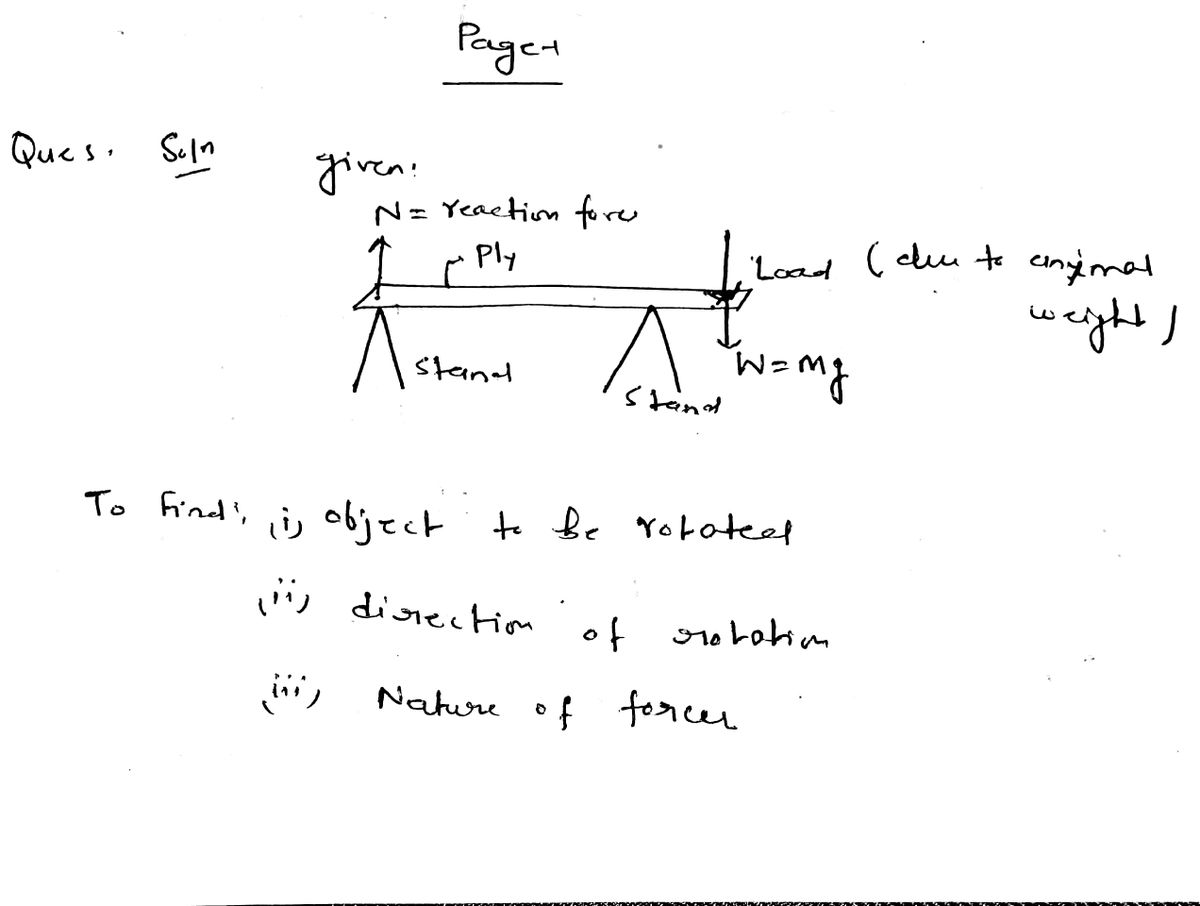 Page-1
Ques. Soln given:
N = reaction force
Ply
Load (due to animal
weight)
Stand
W = mg
Stand
To Find: (i) object to be rotated
(ii) direction of rotation
(iii) Nature of forces